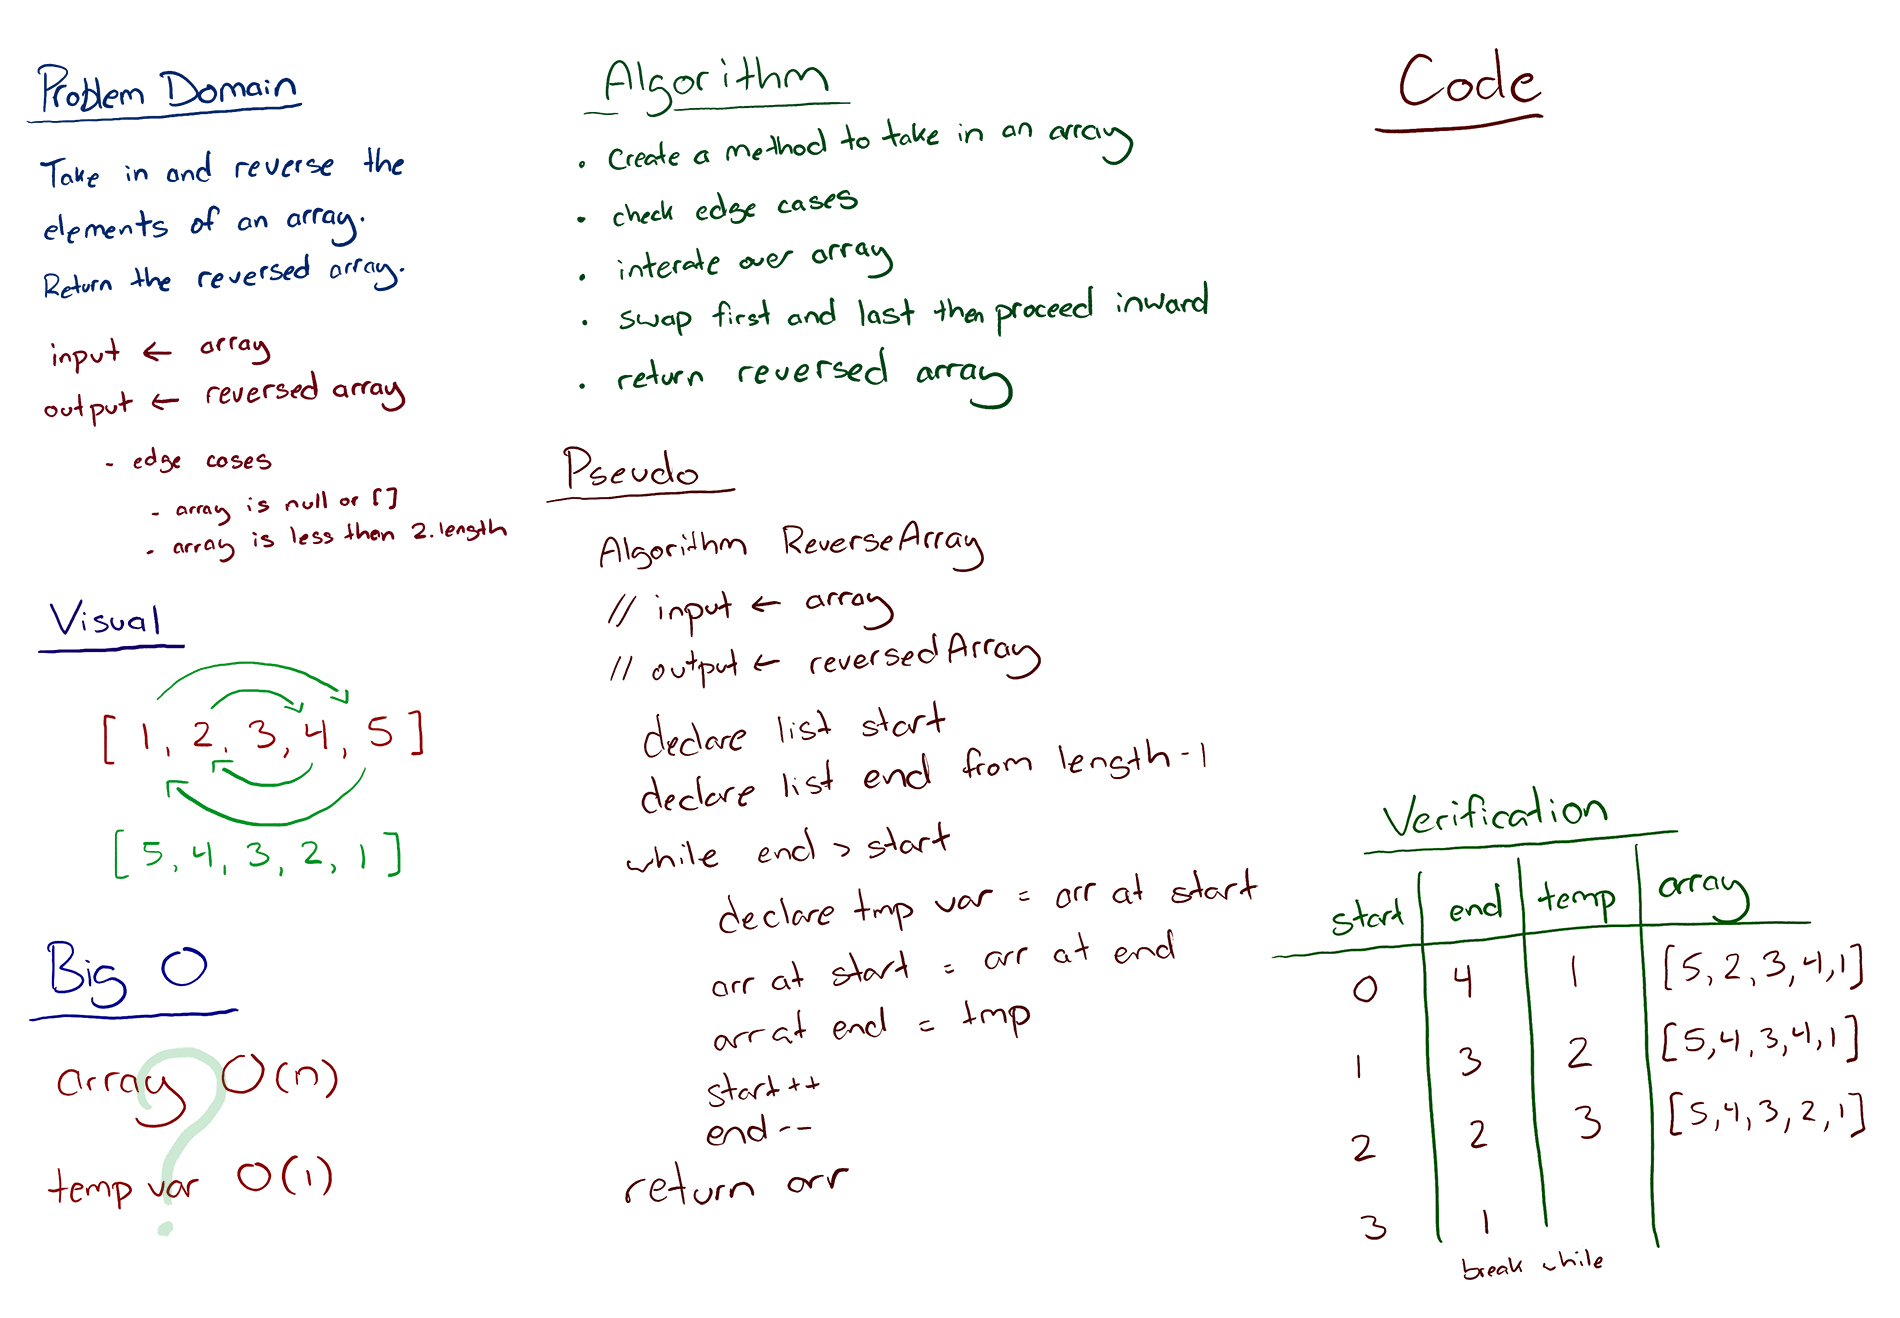 Problem Domain
Take in and reverse the
elements of an array.
Return the reversed array.
input ← array
output ← reversed array
- edge cases
- array is null or []
- array is less then 2.length
Visual
[ 1, 2, 3, 4, 5 ]
[ 5, 4, 3, 2, 1 ]
Big O
?
array O(n)
temp var O(1)
Algorithm
• Create a method to take in an array
• check edge cases
• interate over array
• swap first and last then proceed inward
• return reversed array
Pseudo
Algorithm ReverseArray
// input ← array
// output ← reversedArray
declare list start
declare list end from length-1
while end > start
declare tmp var = arr at start
arr at start = arr at end
arr at end = tmp
start++
end--
return arr
Code
Verification
start end temp array
0 4 1 [5, 2, 3, 4, 1]
1 3 2 [5, 4, 3, 4, 1]
2 2 3 [5, 4, 3, 2, 1]
3 1
break while